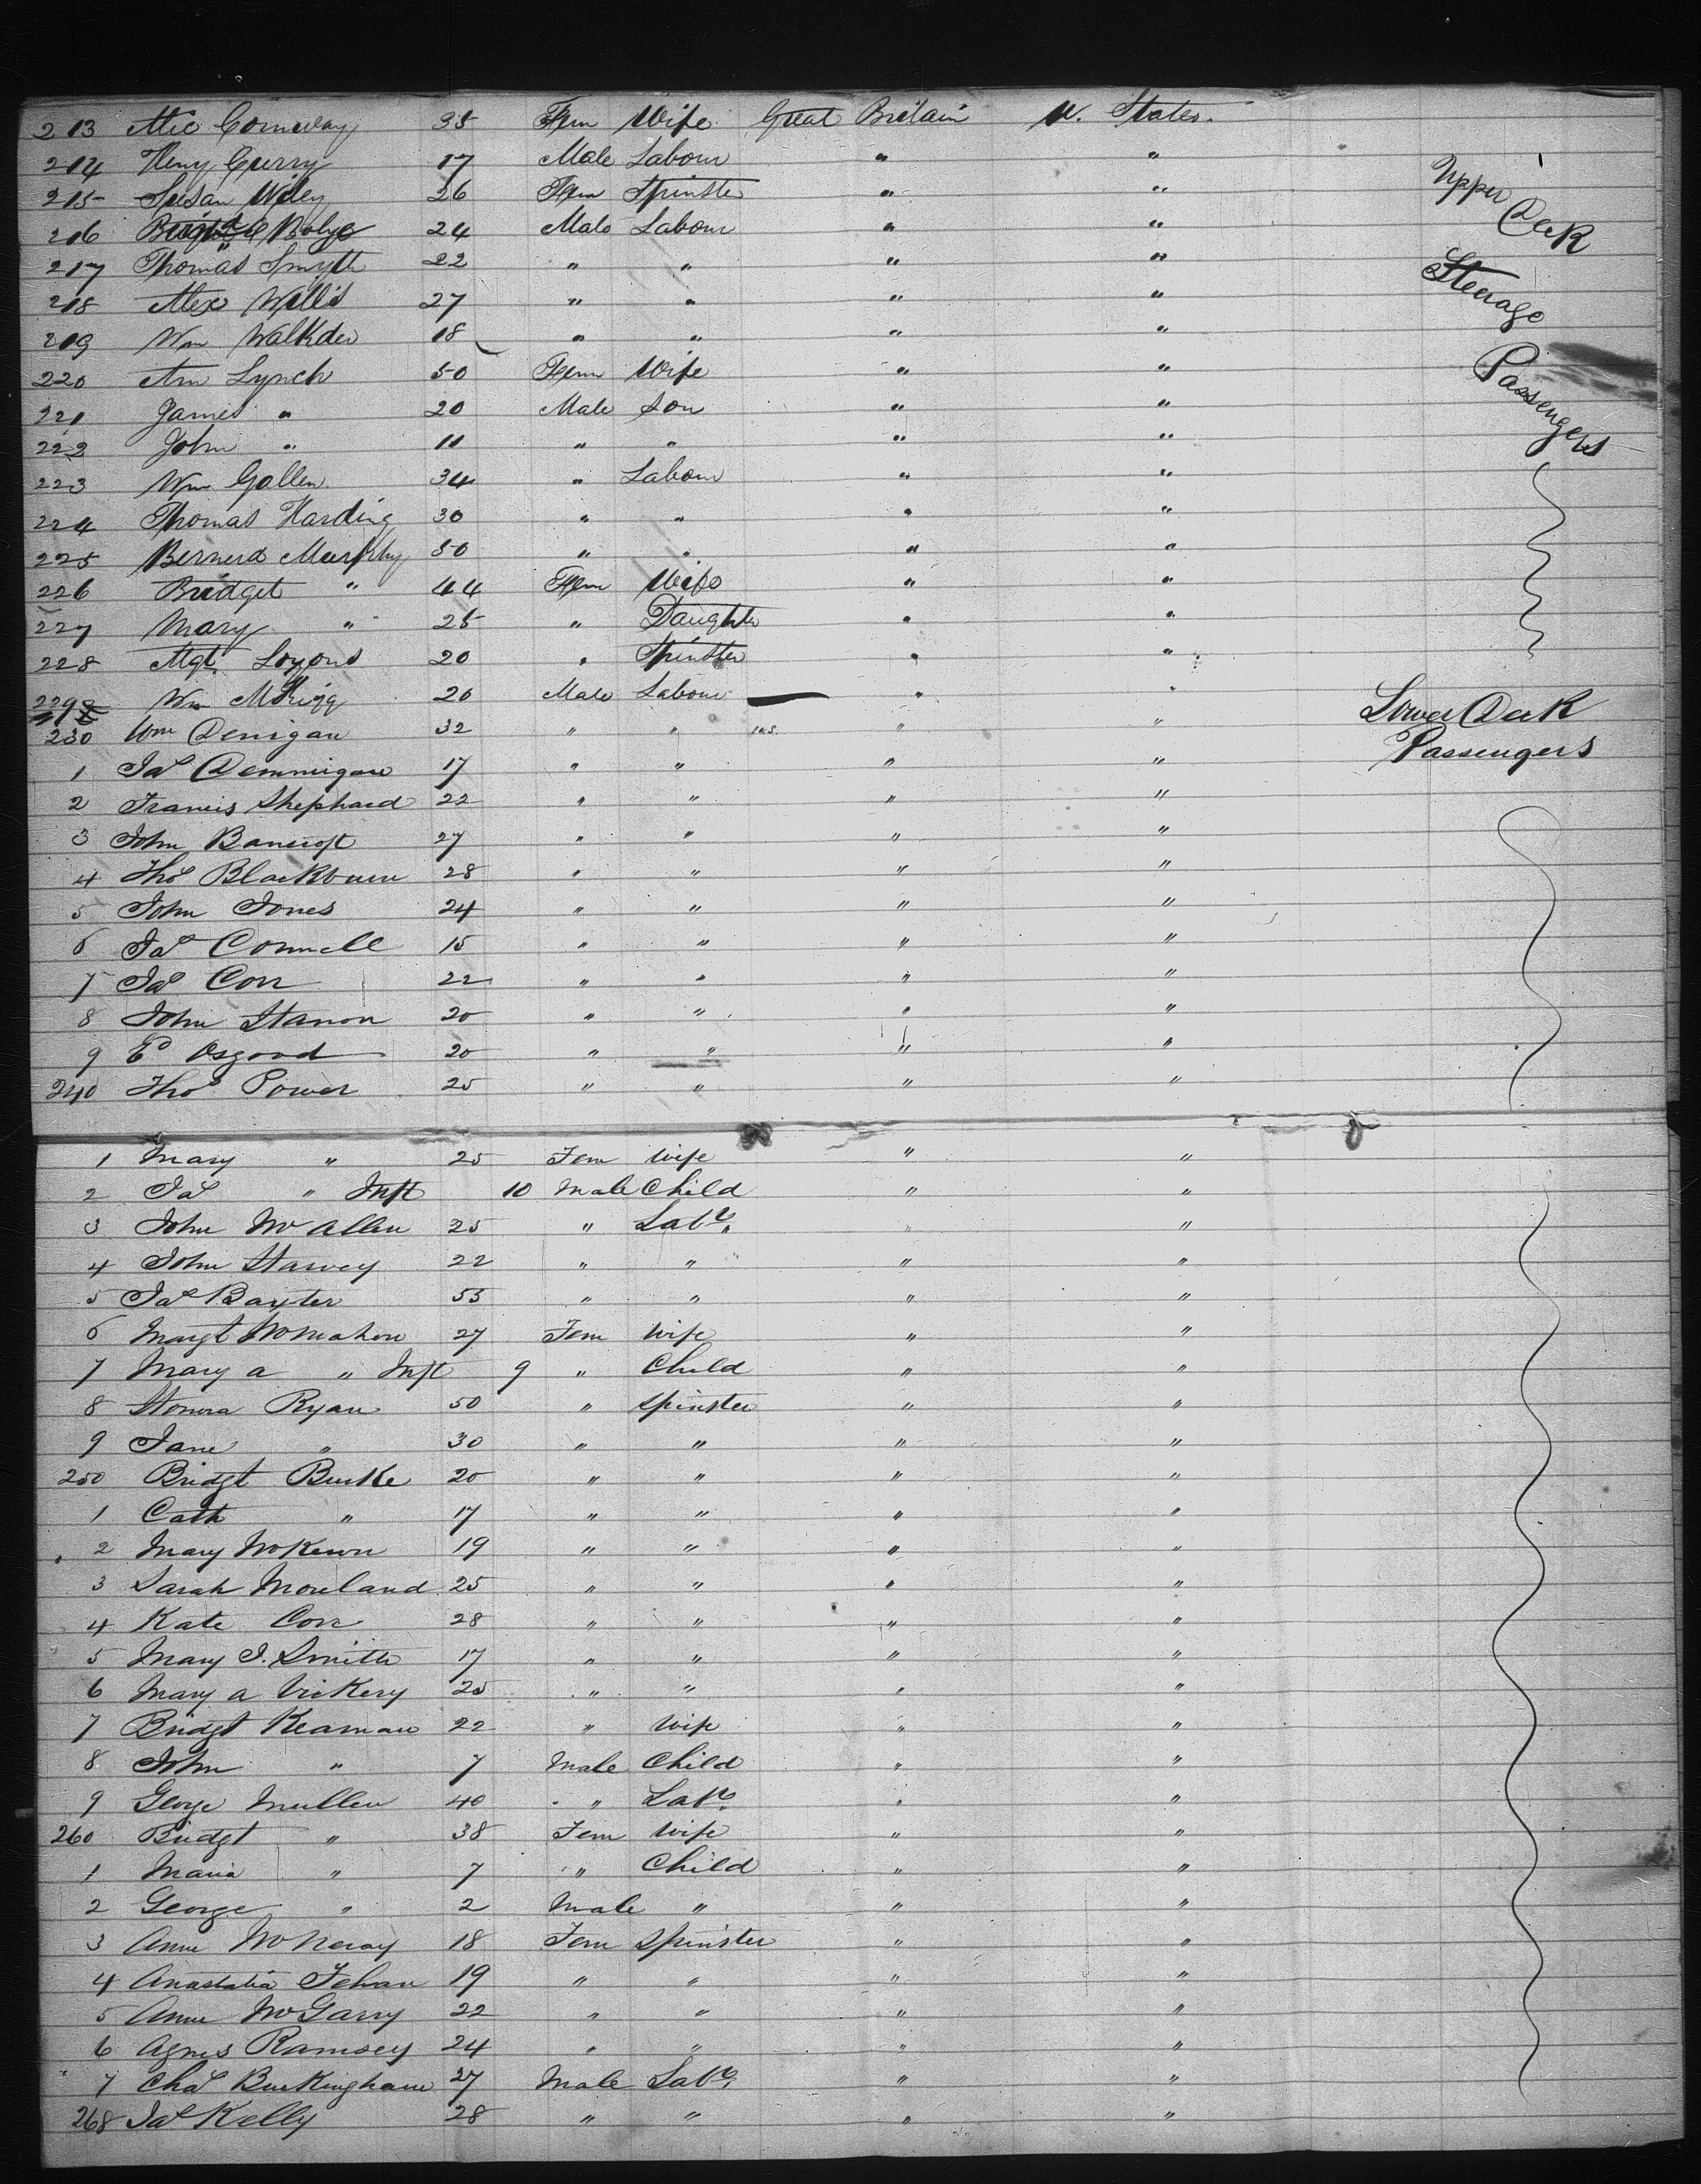 213 Alic Comway 35 Fem Wife Great Britain U. States.
214 Heny Curry 17 Male Labour " "
215 Susan Wiley 26 Fem Spinster " "
216 24 Male Labour " "
217 Thomas Smyth 22 " " " "
218 Alex Wills 27 " " " "
219 Wm Walkder 18 " " " "
220 Ann Lynch 50 Fem Wife " "
221 James " 20 Male Son " "
222 John " 11 " " " "
223 Wm Gollen 34 " Labour " "
224 Thomas Harding 30 " " " "
225 Bernerd Murphy 50 " " " "
226 Bridget " 44 Fem Wife " "
227 Mary " 25 " Daughter " "
228 Mgt Loyons 20 " Spinster " "
229 Wm 20 Male Labour " "
Upper Deck
Steerage
Passengers
230 Wm Denigan 32 " " " "
1 Jas Dennigan 17 " " " "
2 Francis Shephard 22 " " " "
3 John Bancroft 27 " " " "
4 Thos Blackburn 28 " " " "
5 John Jones 24 " " " "
6 Jas Connell 15 " " " "
7 Jas Corr 22 " " " "
8 John Hanon 20 " " " "
9 Ed Osgood 20 " " " "
240 Thos Power 25 " " " "
Lower Deck
Passengers
1 Mary " 25 Fem Wife " "
2 Jas " Inft 10 Male Child " "
3 John McAllen 25 " Labr " "
4 John Harvey 22 " " " "
5 Jas Baxter 53 " " " "
6 Margt McMahon 27 Fem Wife " "
7 Mary A " Inft 9 " Child " "
8 Honora Ryan 50 " Spinster " "
9 Jane " 30 " " " "
250 Bridgt Burke 20 " " " "
1 Cath " 17 " " " "
2 Mary McKeown 19 " " " "
3 Sarah Moreland 25 " " " "
4 Kate Corr 28 " " " "
5 Mary J. Smith 17 " " " "
6 Mary A Vickery 25 " " " "
7 Bridgt Keaman 22 " Wife " "
8 John " 7 Male Child " "
9 George Mullen 40 " Labr " "
260 Bridgt " 38 Fem Wife " "
1 Maria " 7 " Child " "
2 George " 2 Male " " "
3 Anne 18 Fem Spinster " "
4 Anastatia Fehan 19 " " " "
5 Anne McGarry 22 " " " "
6 Agnes Ramsey 24 " " " "
7 Chas Buckingham 27 Male Labr " "
268 Jas Kelly 28 " " " "